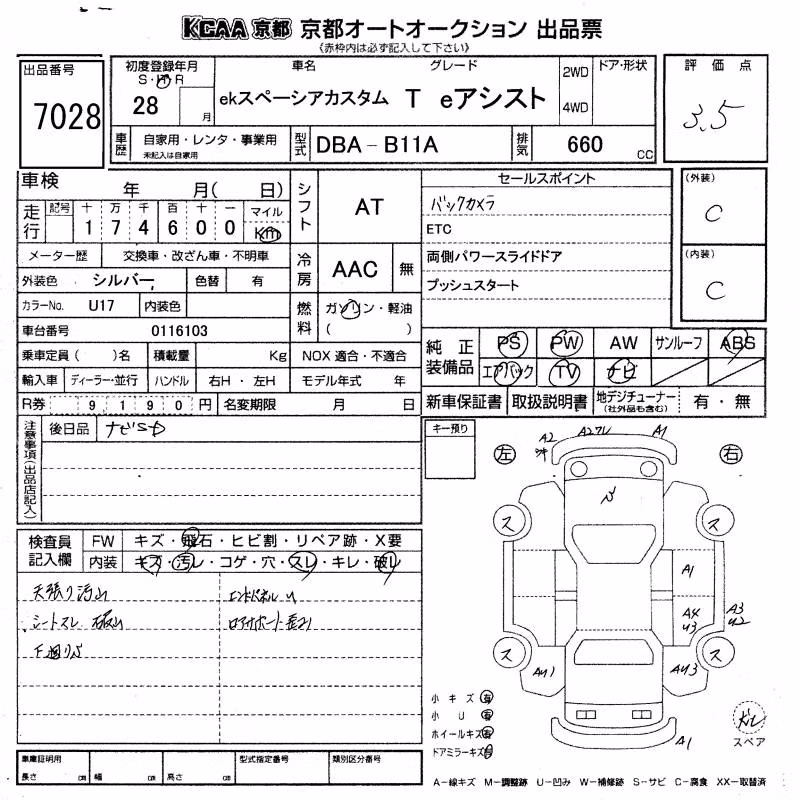 KCAA 京都 京都オートオークション 出品票
《赤枠内は必ず記入して下さい》
出品番号
7028
初度登録年月
S・H・R
28
月
車名
グレード
ekスペーシアカスタム T eアシスト
2WD
4WD
ドア・形状
評価点
3.5
車歴
自家用・レンタ・事業用
未記入は自家用
型式
DBA-B11A
排気
660
CC
車検
年 月( 日)
走行
記号 十 万 千 百 十 一 マイル
1 7 4 6 0 0
Km
メーター歴
交換車・改ざん車・不明車
外装色
シルバー
色替
有
カラーNo.
U17
内装色
車台番号
0116103
乗車定員( )名
積載量
Kg
輸入車
ディーラー・並行
ハンドル
右H・左H
R券
9190円
名変期限
月 日
シフト
AT
冷房
AAC
無
燃料
ガソリン・軽油
( )
NOX 適合・不適合
モデル年式 年
セールスポイント
バックカメラ
ETC
両側パワースライドドア
プッシュスタート
(外装)
C
(内装)
C
純正装備品
PS
PW
AW
サンルーフ
ABS
エアバック
TV
ナビ
新車保証書
取扱説明書
地デジチューナー
(社外品も含む)
有・無
注意事項(出品店記入)
後日品
ナビSD
キー預り
検査員記入欄
FW
キズ・飛石・ヒビ割・リペア跡・X要
内装
キズ・汚レ・コゲ・穴・スレ・キレ・破レ
天張り汚れ
シートスレ 破れ
下廻りS
エンドパネル U
ロアサポート
左
右
A2
A2ワレ
A1
ス
ス
ス
ス
A1
A4
U3
A3
U2
AU1
AU3
A1
小キズ 有
小U 有
ホイールキズ 有
ドアミラーキズ 有
スペア
車庫証明用
長さ cm 幅 cm 高さ cm
型式指定番号
類別区分番号
A-線キズ M-調整跡 U-凹み W-補修跡 S-サビ C-腐食 XX-取替済